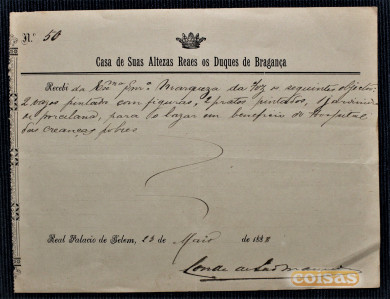 N.º 50
Casa de Suas Altezas Reaes os Duques de Bragança
Recebi da Exma Snra Marqueza da Foz os seguintes objectos:
2 vazos pintados com figuras, 2 pratos pintados,
de porcelana, para o bazar em beneficio do Hospital
das creanças pobres
Real Palacio de Belem, 23 de Maio de 188
Conde de
coisas